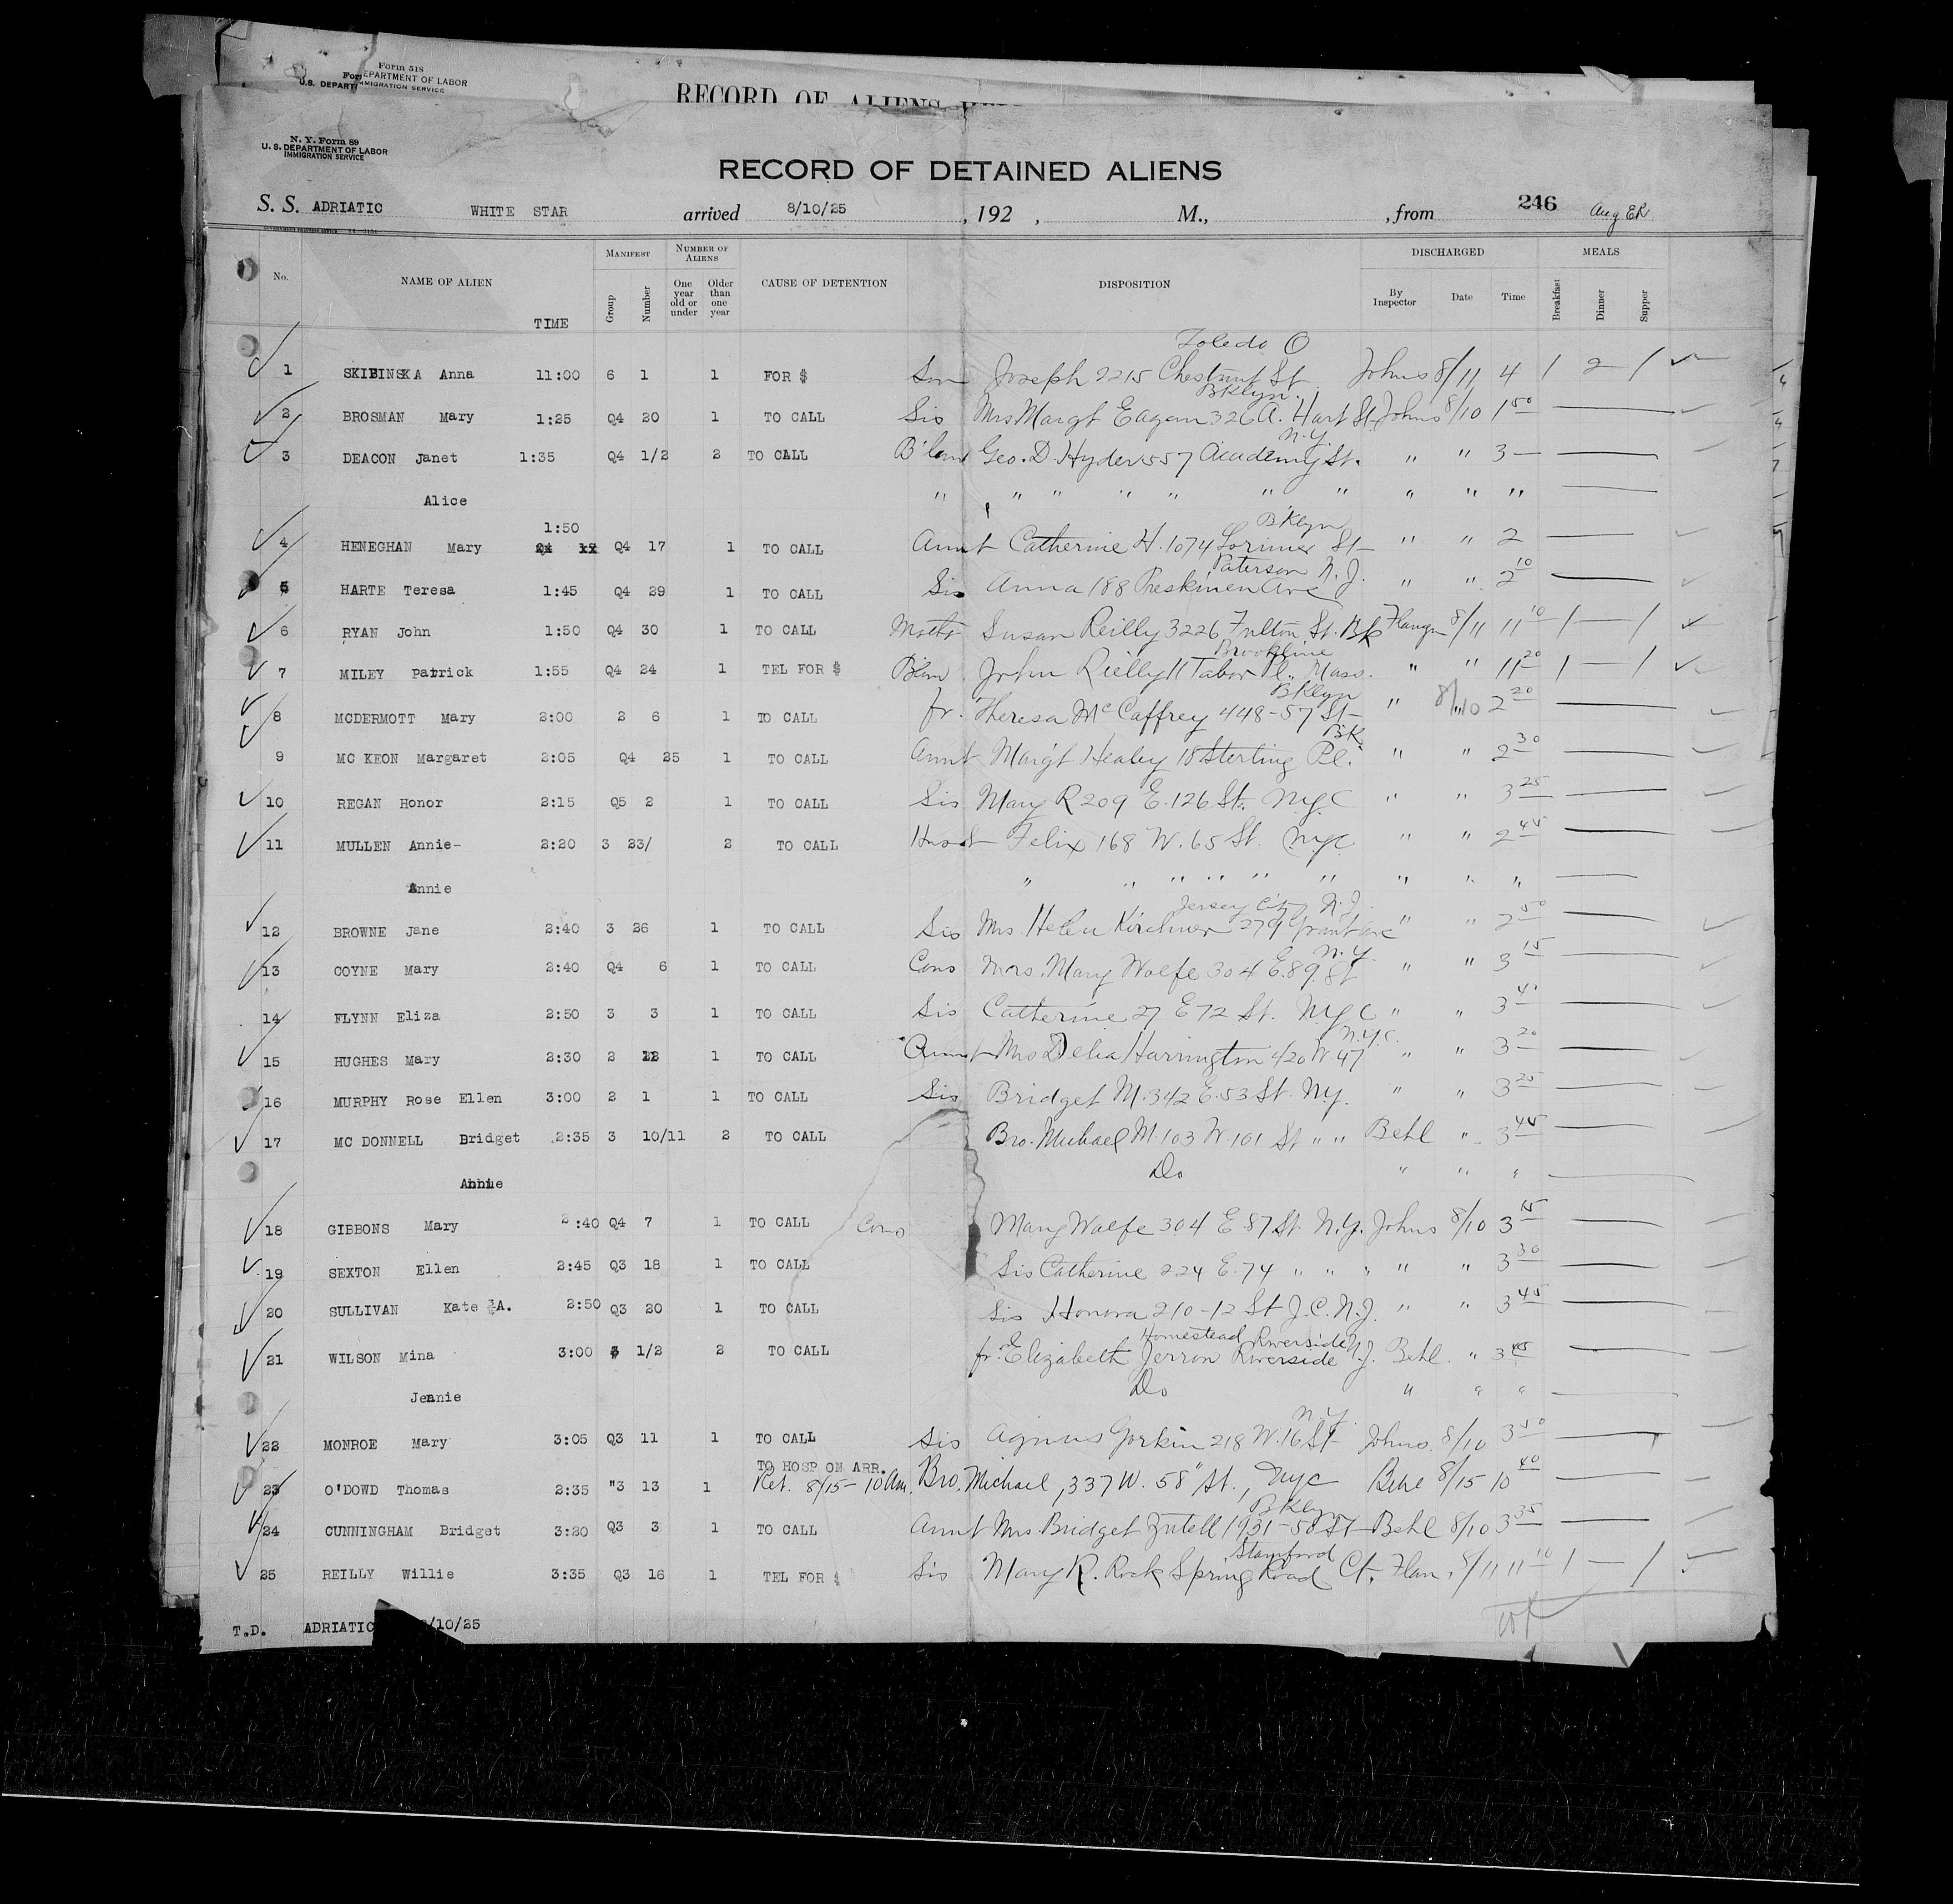 Form 518
DEPARTMENT OF LABOR
U.S. DEPART IMMIGRATION SERVICE
RECORD OF ALIENS
N. Y. Form 89
U. S. DEPARTMENT OF LABOR
IMMIGRATION SERVICE
RECORD OF DETAINED ALIENS
S. S. ADRIATIC WHITE STAR arrived 8/10/25 , 192 , M., , from 246 Aug ER
No. NAME OF ALIEN TIME MANIFEST Group Number NUMBER OF ALIENS One year old or under Older than one year CAUSE OF DETENTION DISPOSITION DISCHARGED By Inspector Date Time MEALS Breakfast Dinner Supper
Toledo O
1 SKIBINSKA Anna 11:00 6 1 1 FOR $ Son Joseph 2215 Chestnut St. Johns 8/11 4 1 2 1
Bklyn.
2 BROSMAN Mary 1:25 Q4 20 1 TO CALL Sis Mrs Margt Eagan 326A. Hart St. Johns 8/10 1 50
N.Y.
3 DEACON Janet 1:35 Q4 1/2 2 TO CALL B'law Geo. D. Hyder 557 Academy St. " " 3 —
Alice " " " " " " " " " "
1:50 B'klyn
4 HENEGHAN Mary Q4 17 1 TO CALL Aunt Catherine H. 1074 Lorimer St — " " 2
Paterson N.J.
5 HARTE Teresa 1:45 Q4 29 1 TO CALL Sis Anna 188 Ave " " 2 10
6 RYAN John 1:50 Q4 30 1 TO CALL Moth Susan Reilly 3226 Fulton St. Bk 8/11 11 10 1 — 1
Brookline
7 MILEY Patrick 1:55 Q4 24 1 TEL FOR $ Blaw John Rielly 11 Tabor Pl., Mass. " " 11 20 1 — 1
Bklyn
8 MCDERMOTT Mary 2:00 2 6 1 TO CALL fr. Theresa McCaffrey 448-57 St — " 8/10 2 20
Bk
9 MC KEON Margaret 2:05 Q4 25 1 TO CALL Aunt Margt Healey 18 Sterling Pl. " " 2 30
10 REGAN Honor 2:15 Q5 2 1 TO CALL Sis Mary R 209 E. 126 St. NYC " " 3 25
11 MULLEN Annie- 2:20 3 23/ 2 TO CALL Husb Felix 168 W. 65 St. NYC " " 2 45
Annie " " " " " " " " "
Jersey City N.J.
12 BROWNE Jane 2:40 3 26 1 TO CALL Sis Mrs. Helen Kirchner 279 Grant ave " " 2 50
N.Y.
13 COYNE Mary 2:40 Q4 6 1 TO CALL Cous Mrs. Mary Wolfe 304 E. 89. St " " 3 15
14 FLYNN Eliza 2:50 3 3 1 TO CALL Sis Catherine 27 E 72 St. NYC " " 3
N.Y.C.
15 HUGHES Mary 2:30 2 1 TO CALL Aunt Mrs Delia Harrington 420 W. 47 " " 3 20
16 MURPHY Rose Ellen 3:00 2 1 1 TO CALL Sis Bridget M. 342 E. 53 St. N.Y. " " 3 25
17 MC DONNELL Bridget 2:35 3 10/11 2 TO CALL Bro. Michael M. 103 W. 101 St " " Behl " 3 45
Annie Do " " "
18 GIBBONS Mary 2:40 Q4 7 1 TO CALL Cous Mary Wolfe 304 E. 87 St N.Y. Johns 8/10 3 15
19 SEXTON Ellen 2:45 Q3 18 1 TO CALL Sis Catherine 224 E. 74 " " " " " 3 30
20 SULLIVAN Kate A. 2:50 Q3 20 1 TO CALL Sis Honora 210-12 St J.C. N.J. " " 3 45
Homestead Riverside
21 WILSON Mina 3:00 1/2 2 TO CALL fr. Elizabeth Jerron Riverside N.J. Behl. " 3 45
Jennie Do " " "
N.Y.
22 MONROE Mary 3:05 Q3 11 1 TO CALL Sis Agnus Gorkin 218 W. 16 St Johns. 8/10 3 50
TO HOSP ON ARR.
23 O'DOWD Thomas 2:35 "3 13 1 Ret. 8/15 - 10 Am. Bro. Michael, 337 W. 58" St., NYC Behl 8/15 10 40
B'klyn
24 CUNNINGHAM Bridget 3:20 Q3 3 1 TO CALL Aunt Mrs Bridget 1931-58 St — Behl 8/10 3 35
Stamford
25 REILLY Willie 3:35 Q3 16 1 TEL FOR $ Sis Mary R. Rock Spring Road Ct. Flan. 8/11 11 10 1 — 1
T.D. ADRIATIC /10/25